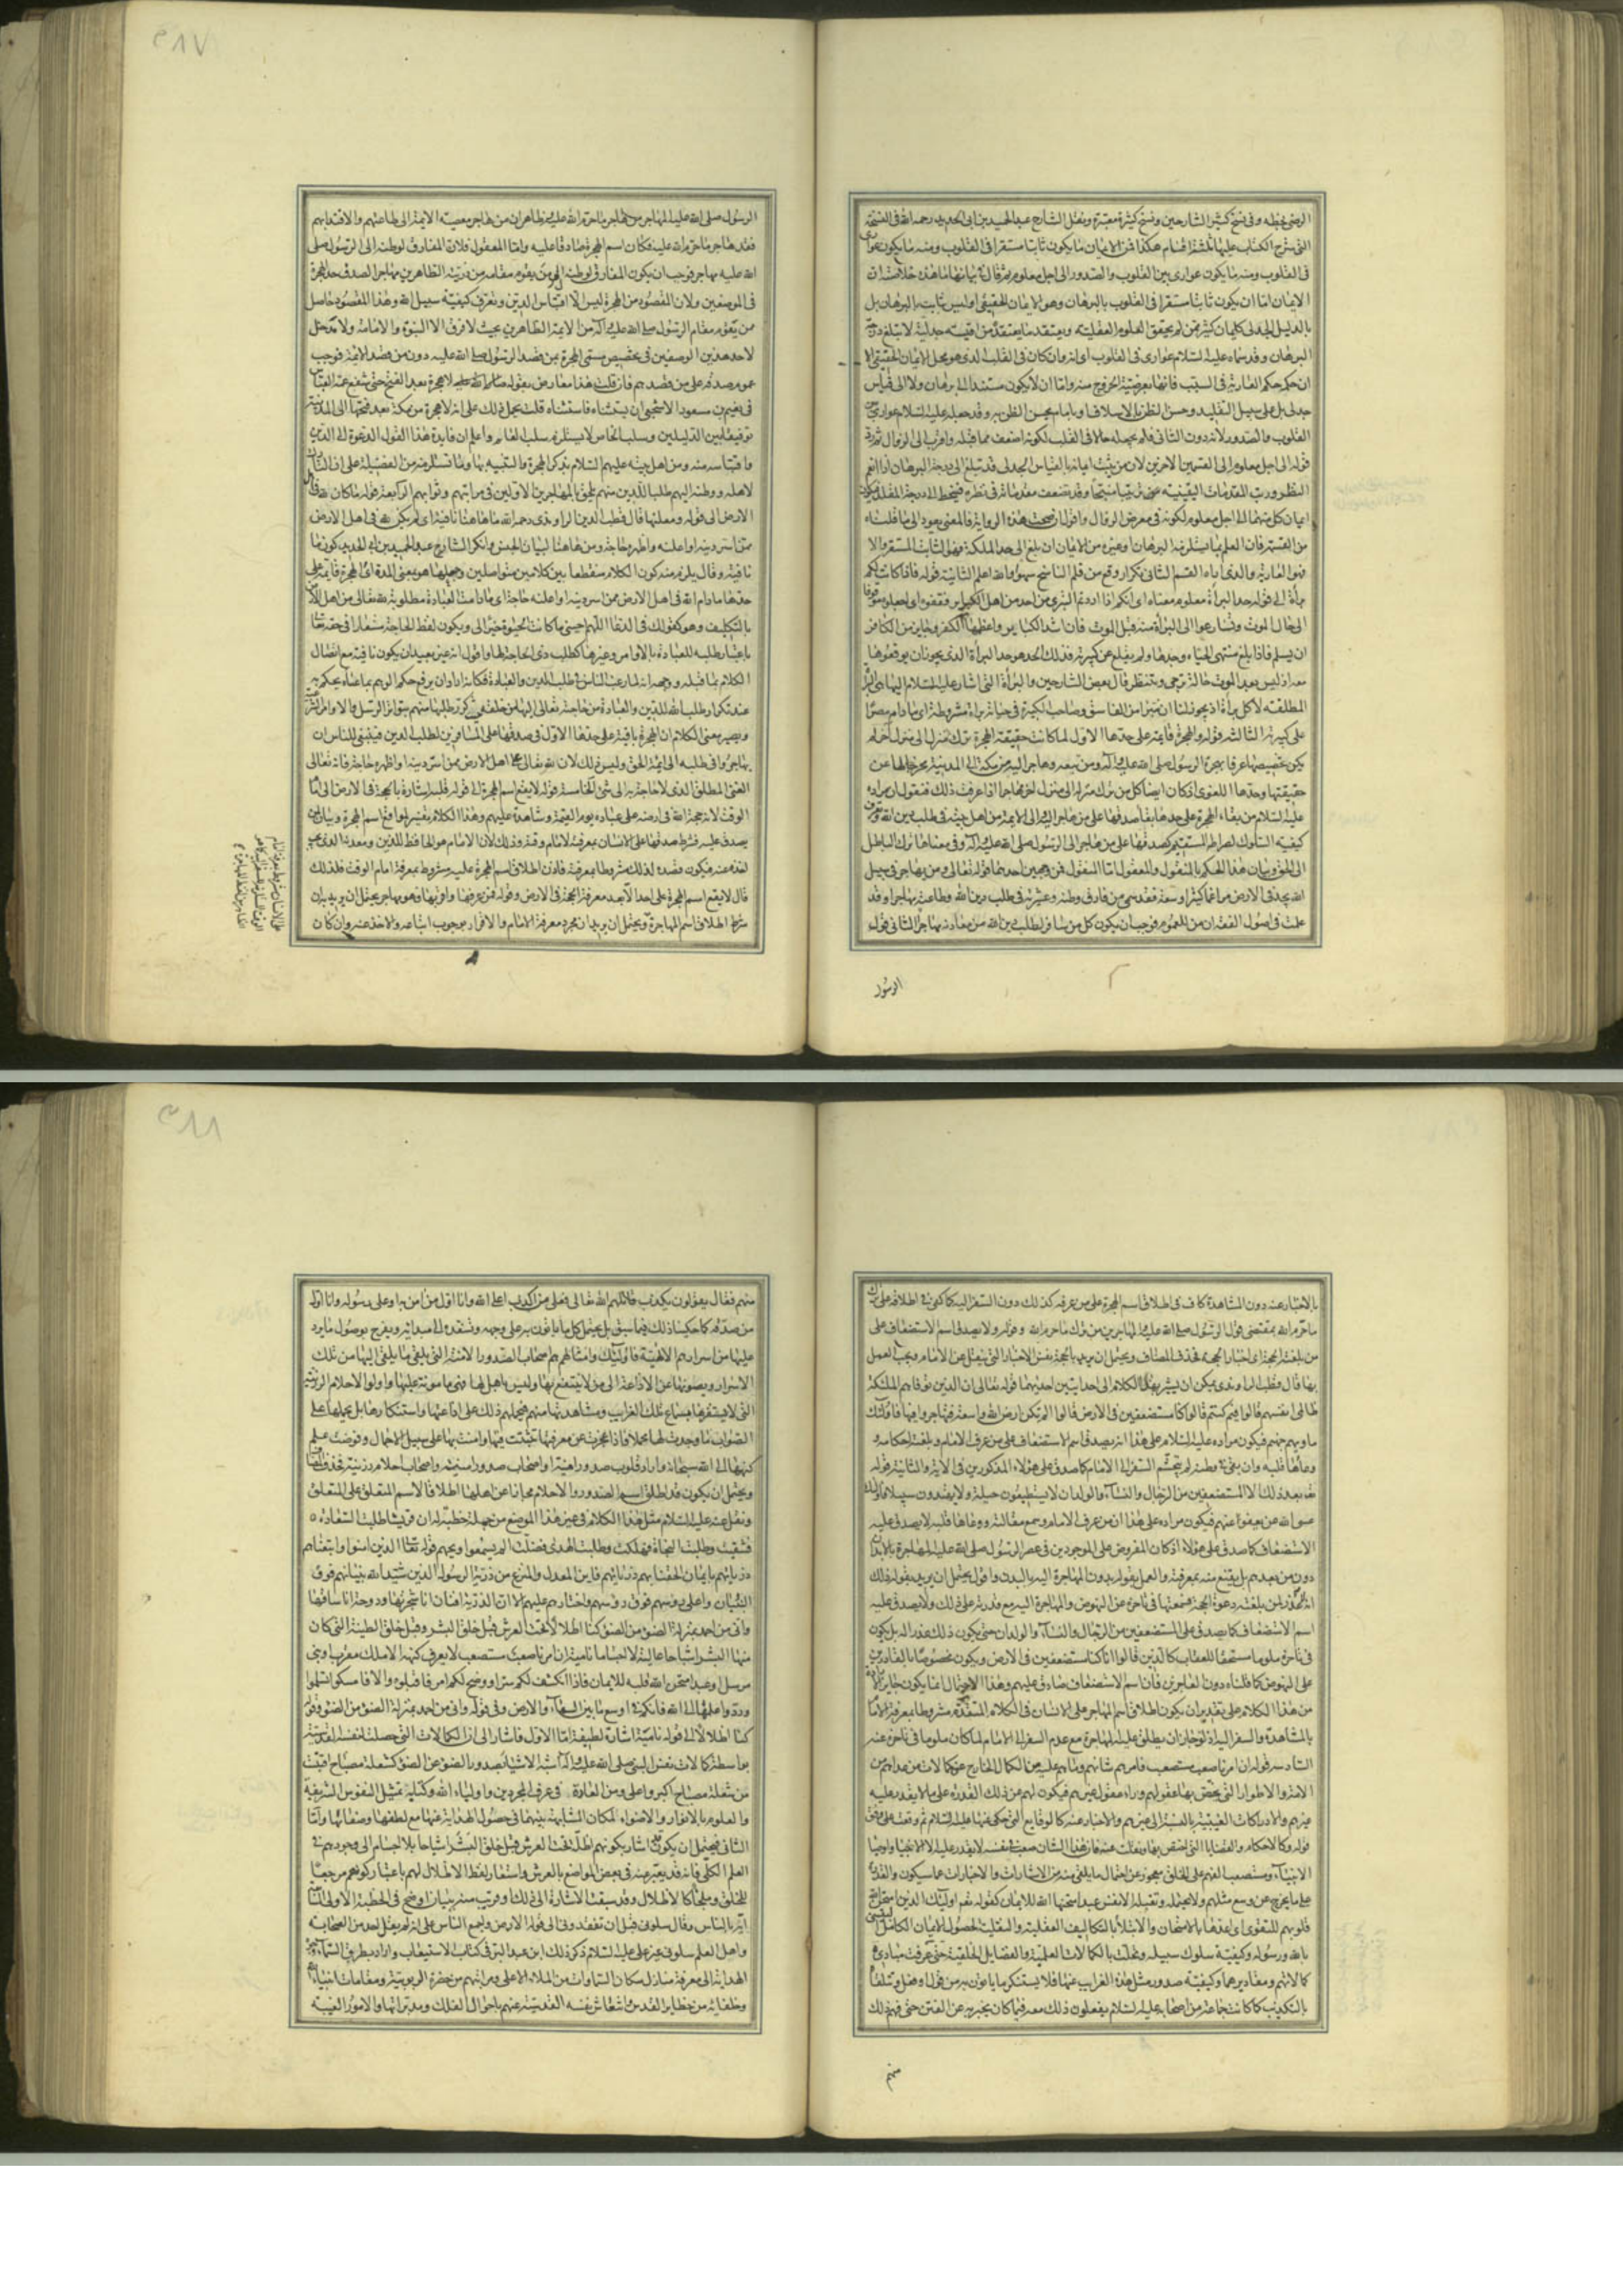 الرضى بخطه وفى نسخ كثير من الشارحين ونسخ كثيرة معتبرة ونقل الشارح عبد الحميد بن ابى الحديد رحمه الله فى النسخة
التى شرح الكتاب عليها ثلثة اقسام هكذا فمن الايمان ما يكون ثابتا مستقرا فى القلوب ومنه ما يكون عوارى
فى القلوب ومنه ما يكون عوارى بين القلوب والصدور الى اجل معلوم ثم قال فى بيانها ما هذه خلاصته ان
الايمان اما ان يكون ثابتا مستقرا فى القلوب بالبرهان وهو الايمان الحقيقى او ليس ثابت بالبرهان بل
بالدليل الجدلى كايمان كثير ممن لم يحقق العلوم العقلية ويعتقد ما يعتقده من اقيسة جدلية لا تبلغ درجة
البرهان وقد سماه عليه السلام عوارى فى القلوب اى انه وان كان فى القلب الذى هو محل الايمان الحقيقى الا
ان حكمه حكم العارية فى السبب فانها بعرضية الخروج منه واما ان لا يكون مستندا الى برهان ولا الى قياس
جدلى بل على سبيل التقليد وحسن الظن بالاسلاف او بامام يحسن الظن به وقد جعله عليه السلام عوارى بين
القلوب والصدور لانه دون الثانى فلم يجعله حالا فى القلب لكونه اضعف مما قبله واقرب الى الزوال ثم رد
قوله الى اجل معلوم الى القسمين الاخيرين لان من يثبت ايمانه بالقياس الجدلى قد تبلغ الى درجة البرهان اذا انعم
النظر ورتب المقدمات اليقينية ترتيبا منتجا وقد تضعف مقدماته فى نظره فيحط الى درجة المقلد فيكون
ايمان كل منهما الى اجل معلوم لكونه فى معرض الزوال واقول ان صحت هذه الرواية فالمعنى يعود الى ما قلناه
من القسمة فان العلم بما يستلزمه البرهان او غيره من الايمان ان بلغ الى حد الملكة فهو الثابت المستقر والا
فهو العارية والذى اراه القسم الثانى تكرار وقع من قلم الناسخ سهوا والله اعلم الثانية قوله فاذا كانت لكم
براءة الى قوله حد البراءة معلوم معناه اى انكم اذا اردتم التبرى من احد من اهل الكبائر فقفوه اى اجعلوه موقوفا
الى حال الموت ولا تسارعوا الى البراءة منه قبل الموت فان اشد الكبائر واعظمها الكفر وجايز من الكافر
ان يسلم فاذا بلغ منتهى الحياة وحدها ولم يقلع عن كبيرته فذلك الحد هو حد البراءة الذى يجوز ان يوقعوها
معه اذ ليس بعد الموت حالة ترجى وتنتظر قال بعض الشارحين والبراءة التى اشار عليه السلام اليها هى البراءة
المطلقة لا كل براءة اذ يجوز لنا ان نتبرا من الفاسق وصاحب الكبيرة فى حياته براءة مشروطة اى ما دام مصرا
على كبيرته الثالثة قوله والهجرة قائمة على حدها الاول لما كانت حقيقة الهجرة ترك منزل الى منزل اخر لم
يكن تخصيصها عرفا بهجرة الرسول صلى الله عليه وآله ومن تبعه وهاجر اليه من مكة الى المدينة مخرجا لها عن
حقيقتها وحدها اللغوى اذ كان ايضا كل من ترك منزله الى منزل اخر مهاجرا اذا عرفت ذلك فنقول ان مراده
عليه السلام من بقاء الهجرة على حدها بقاء صدقها على من هاجر اليه او الى الائمة من اهل بيته فى طلب دين الله وتعرف
كيفية السلوك لصراطه المستقيم كصدقها على من هاجر الى الرسول صلى الله عليه وآله وفى معناها ترك الباطل
الى الحق وبيان هذا الحكم بالمنقول والمعقول اما المنقول فمن وجهين احدهما قوله تعالى ومن يهاجر فى سبيل
الله يجد فى الارض مراغما كثيرا وسعة فقد سمى من فارق وطنه وعشيرته فى طلب دين الله وطاعته مهاجرا وقد
علمت فى اصول الفقه ان من للعموم فوجب ان يكون كل من سافر لطلب دين الله من معادنه مهاجرا الثانى قول
الرسول
الرسول صلى الله عليه المهاجر من هاجر ما حرم الله عليه وظاهر ان من هاجر معصية الائمة الى طاعتهم والاقتداء بهم
فقد هاجر ما حرم الله عليه فكان اسم الهجرة صادقا عليه واما المعقول فلان المفارق لوطنه الى الرسول صلى
الله عليه مهاجر فوجب ان يكون المفارق لوطنه الى من يقوم مقامه من ذريته الطاهرين مهاجرا لصدق حد الهجرة
فى الموضعين ولان المقصود من الهجرة ليس الا اقتباس الدين وتعرف كيفية سبيل الله وهذا المقصود حاصل
ممن يقوم مقام الرسول صلى الله عليه وآله من الائمة الطاهرين بحيث لا فرق الا النبوة والامامة ولا مدخل
لاحد هذين الوصفين فى تخصيص مسمى الهجرة بمن قصد الرسول صلى الله عليه دون من قصد الائمة فوجب
عموم صدقه على من قصدهم فان قلت هذا معارض بقوله صلى الله عليه لا هجرة بعد الفتح حتى شفع عمه العباس
فى نعيم بن مسعود الاشجعى ان يستثناه فاستثناه قلت يحمل ذلك على انه لا هجرة من مكة بعد فتحها الى المدينة
توفيقا بين الدليلين وسلب الخاص لا يستلزم سلب العام واعلم ان فايدة هذا القول الدعوة الى الدين
واقتباسه منه ومن اهل بيته عليهم السلام بذكر الهجرة والتنبيه بها وبما تستلزمه من الفضيلة على ان التارك
لاهله ووطنه اليهم طلبا للدين منهم يلحق بالمهاجرين الاولين فى مراتبهم وثوابهم الرابعة قوله ما كان لله فى اهل
الارض الى قوله ومعلنها قال قطب الدين الراوندى رحمه الله ما هاهنا نافية اى لم يكن لله فى اهل الارض
ممن اسر دينه او اعلنه واظهره حاجة ومن هاهنا لبيان الجنس وانكر الشارح عبد الحميد بن ابى الحديد كون ما
نافية وقال يلزم منه كون الكلام منقطعا بين كلامين متواصلين وجعلها هو بمعنى المدة اى الهجرة قائمة على
حدها ما دام لله فى اهل الارض ممن اسر دينه او اعلنه حاجة اى ما دامت العبادة مطلوبة لله تعالى من اهل الارض
بالتكليف وهو كقولك فى الدعا اللهم احينى ما كانت الحيوة خيرا لى ويكون لفظ الحاجة مستعارا فى حقه تعالى
باعتبار طلبه للعبادة بالاوامر وغيرها كطلب ذى الحاجة لها واقول انه غير بعيد ان يكون نافية مع اتصال
الكلام بما قبله ووجهه انه لما رغب الناس فى طلب الدين والعبادة فكانه اراد ان يرفع حكم الوهم بما عساه يحكم به
عند تكرار طلب الله للدين والعبادة من حاجته تعالى اليها من خلقه حتى كرر طلبها منهم بتواتر الرسل والاوامر الشرعية
ويصير معنى الكلام ان الهجرة باقية على حدها الاول فى صدقها على المسافرين لطلب الدين فينبغى للناس ان
يهاجروا فى طلبه الى ائمة الحق وليس ذلك لان لله تعالى الى اهل الارض ممن اسر دينه او اظهره حاجة فانه تعالى
الغنى المطلق الذى لا حاجة به الى شئ الخامسة قوله لا يقع اسم الهجرة الى قوله قلبه اشارة بالحجة فى الارض الى امام
الوقت لانه حجة الله فى ارضه على عباده يوم القيمة وشاهده عليهم وهذا الكلام تفسير لمواقع اسم الهجرة وبيان لمن
يصدق عليه فشرط صدقها على الانسان بمعرفته لامام وقته وذلك لان الامام هو الحافظ للدين ومعدنه الذى يجب
اخذه عنه فيكون قصده لذلك مشروطا بمعرفته فاذن اطلاق اسم الهجرة عليه مشروط بمعرفة امام الوقت فلذلك
قال لا يقع اسم الهجرة على احد الا بعد معرفة الحجة فى الارض وقوله فمن عرفها واقر بها فهو مهاجر يحتمل ان يريد به ان
شرط اطلاق اسم المهاجرة ويحتمل ان يريد ان مجرد معرفة الامام والاقرار بوجوب اتباعه والاخذ عنه وان كان
بالاخبار عنه دون المشاهدة كاف فى اطلاق اسم الهجرة على من عرفه كذلك دون السفر اليه كما كفى فى اطلاقه على ترك
ما حرم الله بمقتضى قول الرسول صلى الله عليه المهاجر من ترك ما حرم الله وقوله ولا يصدق اسم الاستضعاف على
من بلغته الحجة اى اخبار الحجة فحذف المضاف ويحتمل ان يريد بالحجة نفس الاخبار التى تنقل عن الامام ويجب العمل
بها قال قطب الراوندى يمكن ان يشير بهذا الكلام الى احد ايتين احديهما قوله تعالى ان الذين توفاهم الملئكة
ظالمى انفسهم قالوا فيم كنتم قالوا كنا مستضعفين فى الارض قالوا الم تكن ارض الله واسعة فتهاجروا فيها فاولئك
ماويهم جهنم فيكون مراده عليه السلام على هذا انه يصدق اسم الاستضعاف على من عرف الامام وبلغته احكامه و
وعاها قلبه وان بقى فى وطنه لم يتجشم السفر الى الامام كما صدق على هؤلاء المذكورين فى الاية والثانية قوله
تعالى بعد ذلك الا المستضعفين من الرجال والنساء والولدان لا يستطيعون حيلة ولا يهتدون سبيلا فاولئك
عسى الله ان يعفو عنهم فيكون مراده على هذا ان من عرف الامام وسمع مقالته ووعاها قلبه لا يصدق عليه
الاستضعاف كما صدق على هؤلاء اذ كان المفروض على الموجودين فى عصر الرسول صلى الله عليه المهاجرة بالابدان
دون من بعدهم بل يقنع منه بمعرفته والعمل بقوله بدون المهاجرة اليه بالبدن واقول يحتمل ان يريد بقوله ذلك
انه لا عذر لمن بلغته دعوة الحجة فسمعها فى تاخره عن النهوض والمهاجرة اليه مع قدرته على ذلك ولا يصدق عليه
اسم الاستضعاف كما يصدق على المستضعفين من الرجال والنساء والولدان حتى يكون ذلك عذرا له بل يكون
فى تاخره ملوما مستحقا للعقاب كالذين قالوا انا كنا مستضعفين فى الارض ويكون مخصوصا بالقادرين
على النهوض كما قلناه دون العاجزين فان اسم الاستضعاف صادق عليهم وهذا الاحتمال انما يكون جايز الارادة
من هذا الكلام على تقدير ان يكون اطلاق اسم المهاجر على الانسان فى الكلام المتقدم مشروطا بمعرفة الامام
بالمشاهدة والسفر اليه اذ لو جاز ان يطلق عليه المهاجرة مع عدم السفر الى الامام لما كان ملوما فى تاخره عنه
السادسة قوله ان امرنا صعب مستصعب فامرهم شانهم وما هم عليه من الكمال الخارج عن كمالات من عداهم من
الامة والاطوار التى يختص بها عقولهم وراء عقول غيرهم فيكون لهم عن ذلك القدرة على ما لا يقدر عليه
غيرهم والادراكات الغيبية بالنسبة الى غيرهم والاخبار عنها كالوقايع التى حكى عنها عليه السلام ثم وقعت على وفق
قوله وكالاحكام والقضايا التى اختص بها ونقلت عنه فان هذا الشان صعب فى نفسه لا يقدر عليه الا الانبياء واوصياء
الانبياء ومستصعب الفهم على الخلق معجوز عن احتمال ما يلقى منه من الاشارات والاخبارات عما سيكون والقدرة
على ما يخرج عن وسع مثلهم ولا يحتمله وتقبله الا نفس عبد امتحنها الله للايمان كقوله تعالى اولئك الذين امتحن الله
قلوبهم للتقوى اى اعدها بالامتحان والابتلاء بالتكاليف العقلية والنقلية لحصول الايمان الكامل
بالله ورسوله وكيفية سلوك سبيله وتحلت بالكمالات العلمية والفضايل الخلقية حتى عرفت مبادى
كمالاتهم ومقاديرهم وكيفية صدور مثل هذه الغرايب عنها فلا يستنكر ما ياتون به من قول او فعل وتلقاه
بالتكذيب كما كانت جماعة من اصحابه عليه السلام يفعلون ذلك معه فيما كان يخبر به عن الفتن حتى فهم ذلك
منهم
منهم فقال يقولون يكذب قاتلهم الله تعالى فعلى من اكذب اعلى الله وانا اول من امن به او على رسوله وانا اول
من صدقه كما حكيناه ذلك فيما سبق بل يحتمل كل ما ياتون به على وجهه وتسنده الى مبدائه ويفرح بوصول ما يرد
عليها من اسرارهم الالهية فاولئك وامثالهم هم اصحاب الصدور الامنة التى يلقى ما يلقى اليها من تلك
الاسرار ويصونها عن الاذاعة الى من لا ينتفع بها وليس باهل لها فهى مامونة عليها واولو الاحلام الرزينة
التى لا يستفزها سماع تلك الغرايب ومشاهدتها منهم فيحملهم ذلك على اذاعتها واستنكارها بل يحملها على
الصواب ما وجدت لها محملا فاذا عجزت عن معرفتها تثبتت فيها وامنت بها على سبيل الاجمال وفوضت علم
كنهها الى الله سبحانه واراد قلوب صدور امينة او اصحاب صدور امينة واصحاب احلام رزينة فحذف المضاف
ويحتمل ان يكون قد اطلق اسم الصدور والاحلام مجازا عن اهلها اطلاقا لاسم المتعلق على المتعلق
ونقل عنه عليه السلام مثل هذا الكلام فى غير هذا الموضع من جملة خطبة له ان قريشا طلبت السعادة
فشقيت وطلبت النجاة فهلكت وطلبت الهدى فضلت الم يسمعوا ويحهم قوله تعالى الذين امنوا واتبعناهم
ذرياتهم بايمان الحقنا بهم ذرياتهم فاين المعدل والمنزع من ذرية الرسول الذين شيد الله بنيانهم فوق
البنيان واعلى رؤسهم فوق رؤسهم واختارهم عليهم الا ان الذرية افنان انا شجرتها ودوحة انا ساقها
وانى من احمد بمنزلة الضوء من الضوء كنا اظلالا تحت العرش قبل خلق البشر وقبل خلق الطينة التى كان
منها البشر اشباحا عالية لا اجساما نامية ان امرنا صعب مستصعب لا يعرف كنهه الا ملك مقرب او نبى
مرسل او عبد امتحن الله قلبه للايمان فاذا انكشف لكم سر او وضح لكم امر فاقبلوه والا فامسكوا تسلموا
وردوا علمها الى الله فانكم فى اوسع ما بين السماء والارض وفى قوله وانى من احمد بمنزلة الضوء من الضوء وقوله
كنا اظلالا الى قوله نامية اشارة لطيفة اما الاول فاشار الى ان الكمالات التى حصلت لنفسه القدسية
بواسطة كمالات نفس النبى صلى الله عليه وآله اشبه الاشياء بصدور الضوء عن الضوء كشعلة مصباح اقتبست
من شعلة مصباح اكبر واعلى ومن العادة فى عرف المجردين واولياء الله وكتابه تمثيل النفوس الشريفة
والعلوم بالانوار والاضواء لمكان المشابهة بينهما فى حصول الهداية عنها مع لطفها وصفائها واما
الثانى فيحتمل ان يكون قد اشار بكونهم اظلة تحت العرش قبل خلق البشر اشباحا بلا اجسام الى وجودهم فى
العلم الكلى فانه قد يعبر عنه فى بعض المواضع بالعرش واستعار لفظ الاظلال لهم باعتبار كونهم مرجعا
للخلق وملجأ كالاظلال وقد سبقت الاشارة الى ذلك وقريب منه ببيان اوضح فى الخطبة الاولى السابعة
ايه بالناس وقال سلونى قبل ان تفقدونى الى قوله الارض واجمع الناس على انه لم يقل احد من الصحابة
واهل العلم سلونى غير على عليه السلام ذكر ذلك ابن عبد البر فى كتاب الاستيعاب واراد بطرق السماء وجوه
الهداية الى معرفة منازل سكان السماوات من الملاء الاعلى ومراتبهم من حضرة الربوبية ومقامات انبياء الله
وخلفائه من حظاير القدس وانتقاش نفسه القدسية عنهم باحوال الفلك ومدبراتها والامور الغيبية